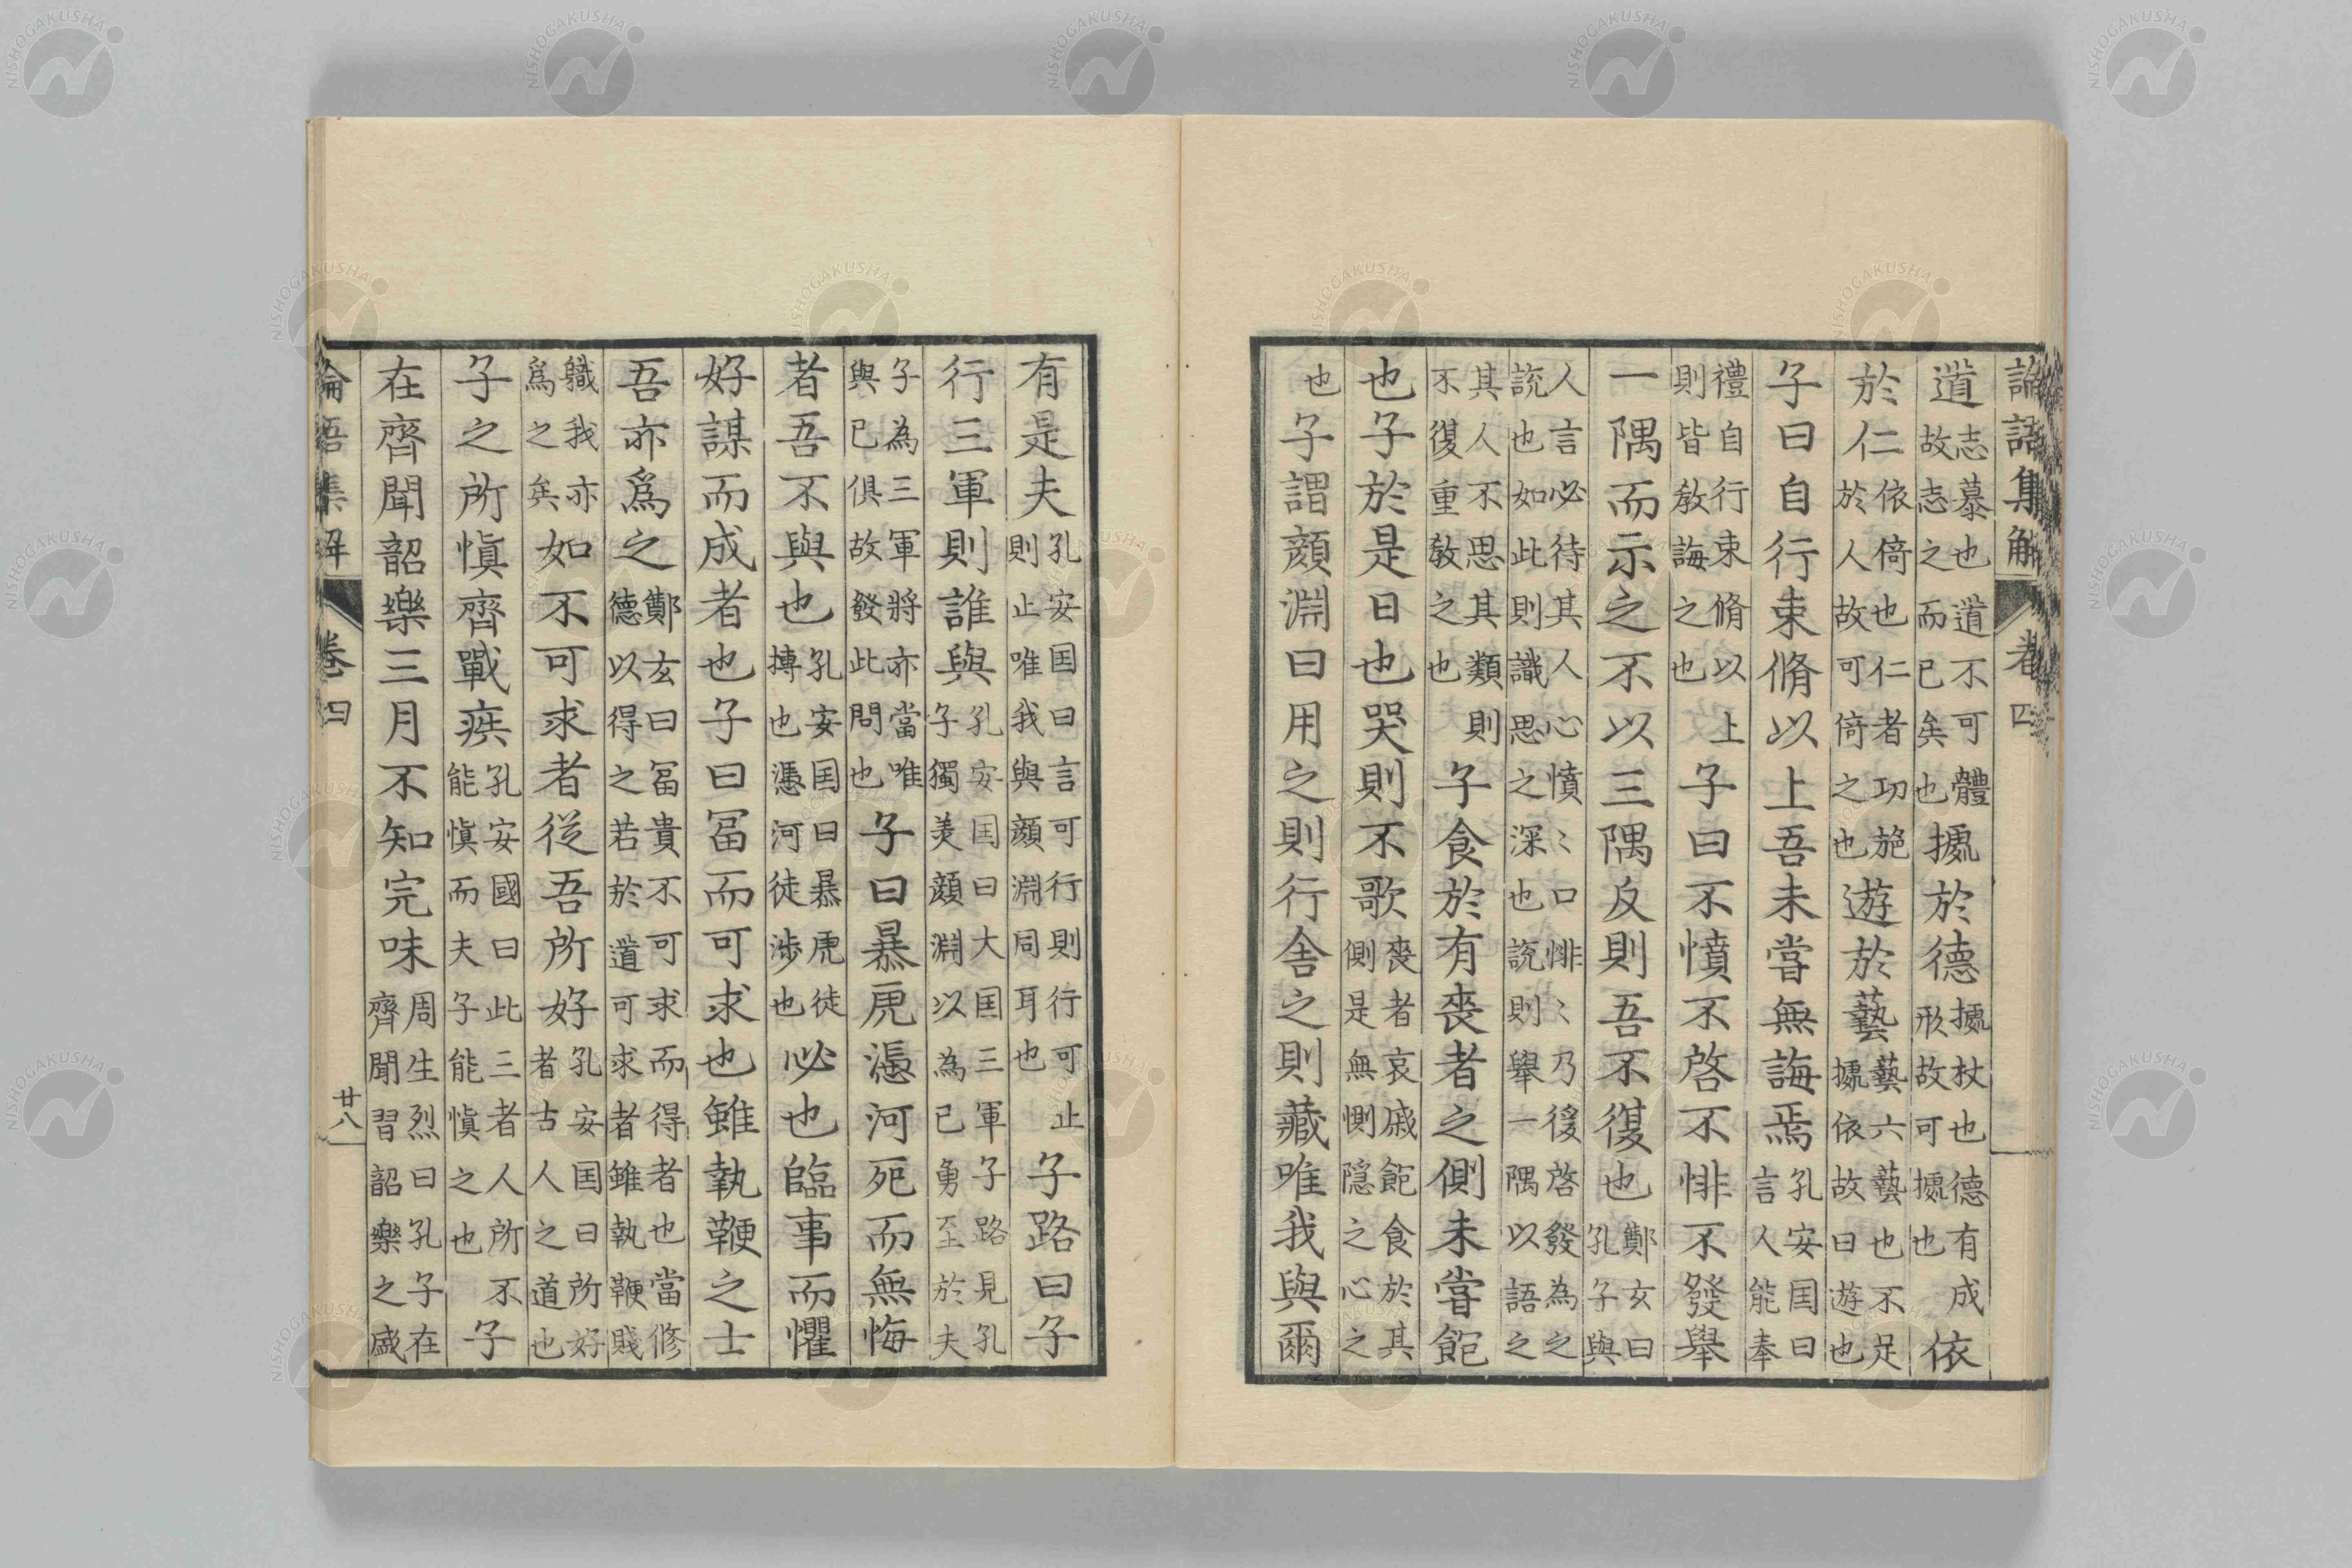 論語集解 卷四
道志慕也道不可體故志之而已矣也據於德據杖也德有成形故可據也依
於仁依倚也仁者功施於人故可倚之也遊於藝藝六藝也不足據依故曰遊也
子曰自行束脩以上吾未嘗無誨焉孔安囯曰言人能奉
禮自行束脩以上則皆教誨之也子曰不憤不啓不悱不發舉
一隅而示之不以三隅反則吾不復也鄭玄曰孔子與
人言必待其人心憤〻口悱〻乃後啓發為之說也如此則識思之深也說則舉一隅以語之
其人不思其類則不復重教之也子食於有喪者之側未嘗飽
也子於是日也哭則不歌喪者哀戚飽食於其側是無惻隱之心之
也子謂顏淵曰用之則行舍之則藏唯我與爾
有是夫孔安囯曰言可行則行可止則止唯我與顏淵同耳也子路曰子
行三軍則誰與孔安囯曰大囯三軍子路見孔子獨美顏淵以為己勇至於夫
子為三軍將亦當唯與已俱故發此問也子曰暴虎憑河死而無悔
者吾不與也孔安囯曰暴虎徒搏也憑河徒涉也必也臨事而懼
好謀而成者也子曰冨而可求也雖執鞭之士
吾亦爲之鄭玄曰冨貴不可求而得者也當修德以得之若於道可求者雖執鞭賤
職我亦爲之矣如不可求者從吾所好孔安囯曰所好者古人之道也
子之所慎齊戰疾孔安國曰此三者人所不能慎而夫子能慎之也子
在齊聞韶樂三月不知完味周生烈曰孔子在齊聞習韶樂之盛
論語集解 卷四 廿八
NISHOGAKUSHA
NISHOGAKUSHA
NISHOGAKUSHA
NISHOGAKUSHA
NISHOGAKUSHA